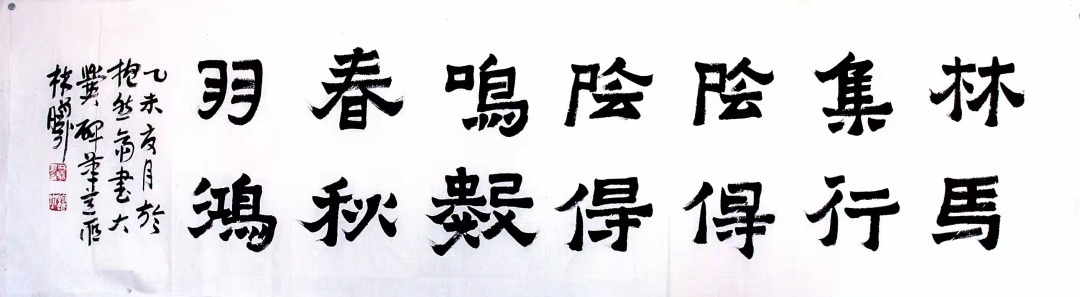 林馬
集行
陰得
陰得
鳴
春秋
羽鴻
乙未夏月於
抱然斋書大
爨碑筆意
林